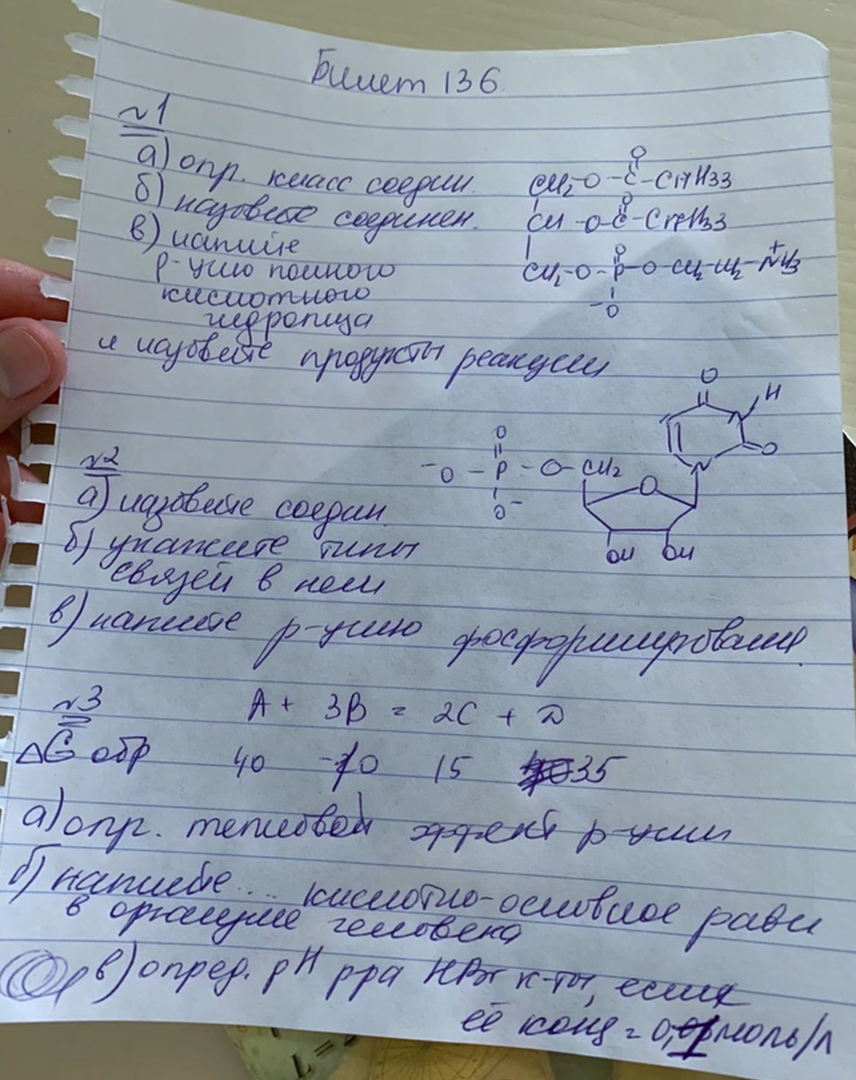 Билет 136
№1
а) опр. класс соедин.
б) назовите соединен.
в) напиште
р-цию полного
кислотного
гидролиза
и назовите продукты реакции
CH₂-O-C-C17H33
O
CH-O-C-C17H33
O
CH₂-O-P-O-CH₂-CH₂-NH3
O
+
-O
№2
а) назовите соедин.
б) укажите типы
связей в нем
в) напишите р-цию фосфорилирования
O
-O-P-O-CH₂
O
O-
O
H
N
O
N
O
OH OH
№3
A + 3B = 2C + D
ΔG обр 40 -10 15 35
а) опр. тепловой эффект р-ции
б) напишите... кислотно-основное равн
в организме человека
в) опред. pH рра HBr к-ты, если
её конц = 0,1 моль/л